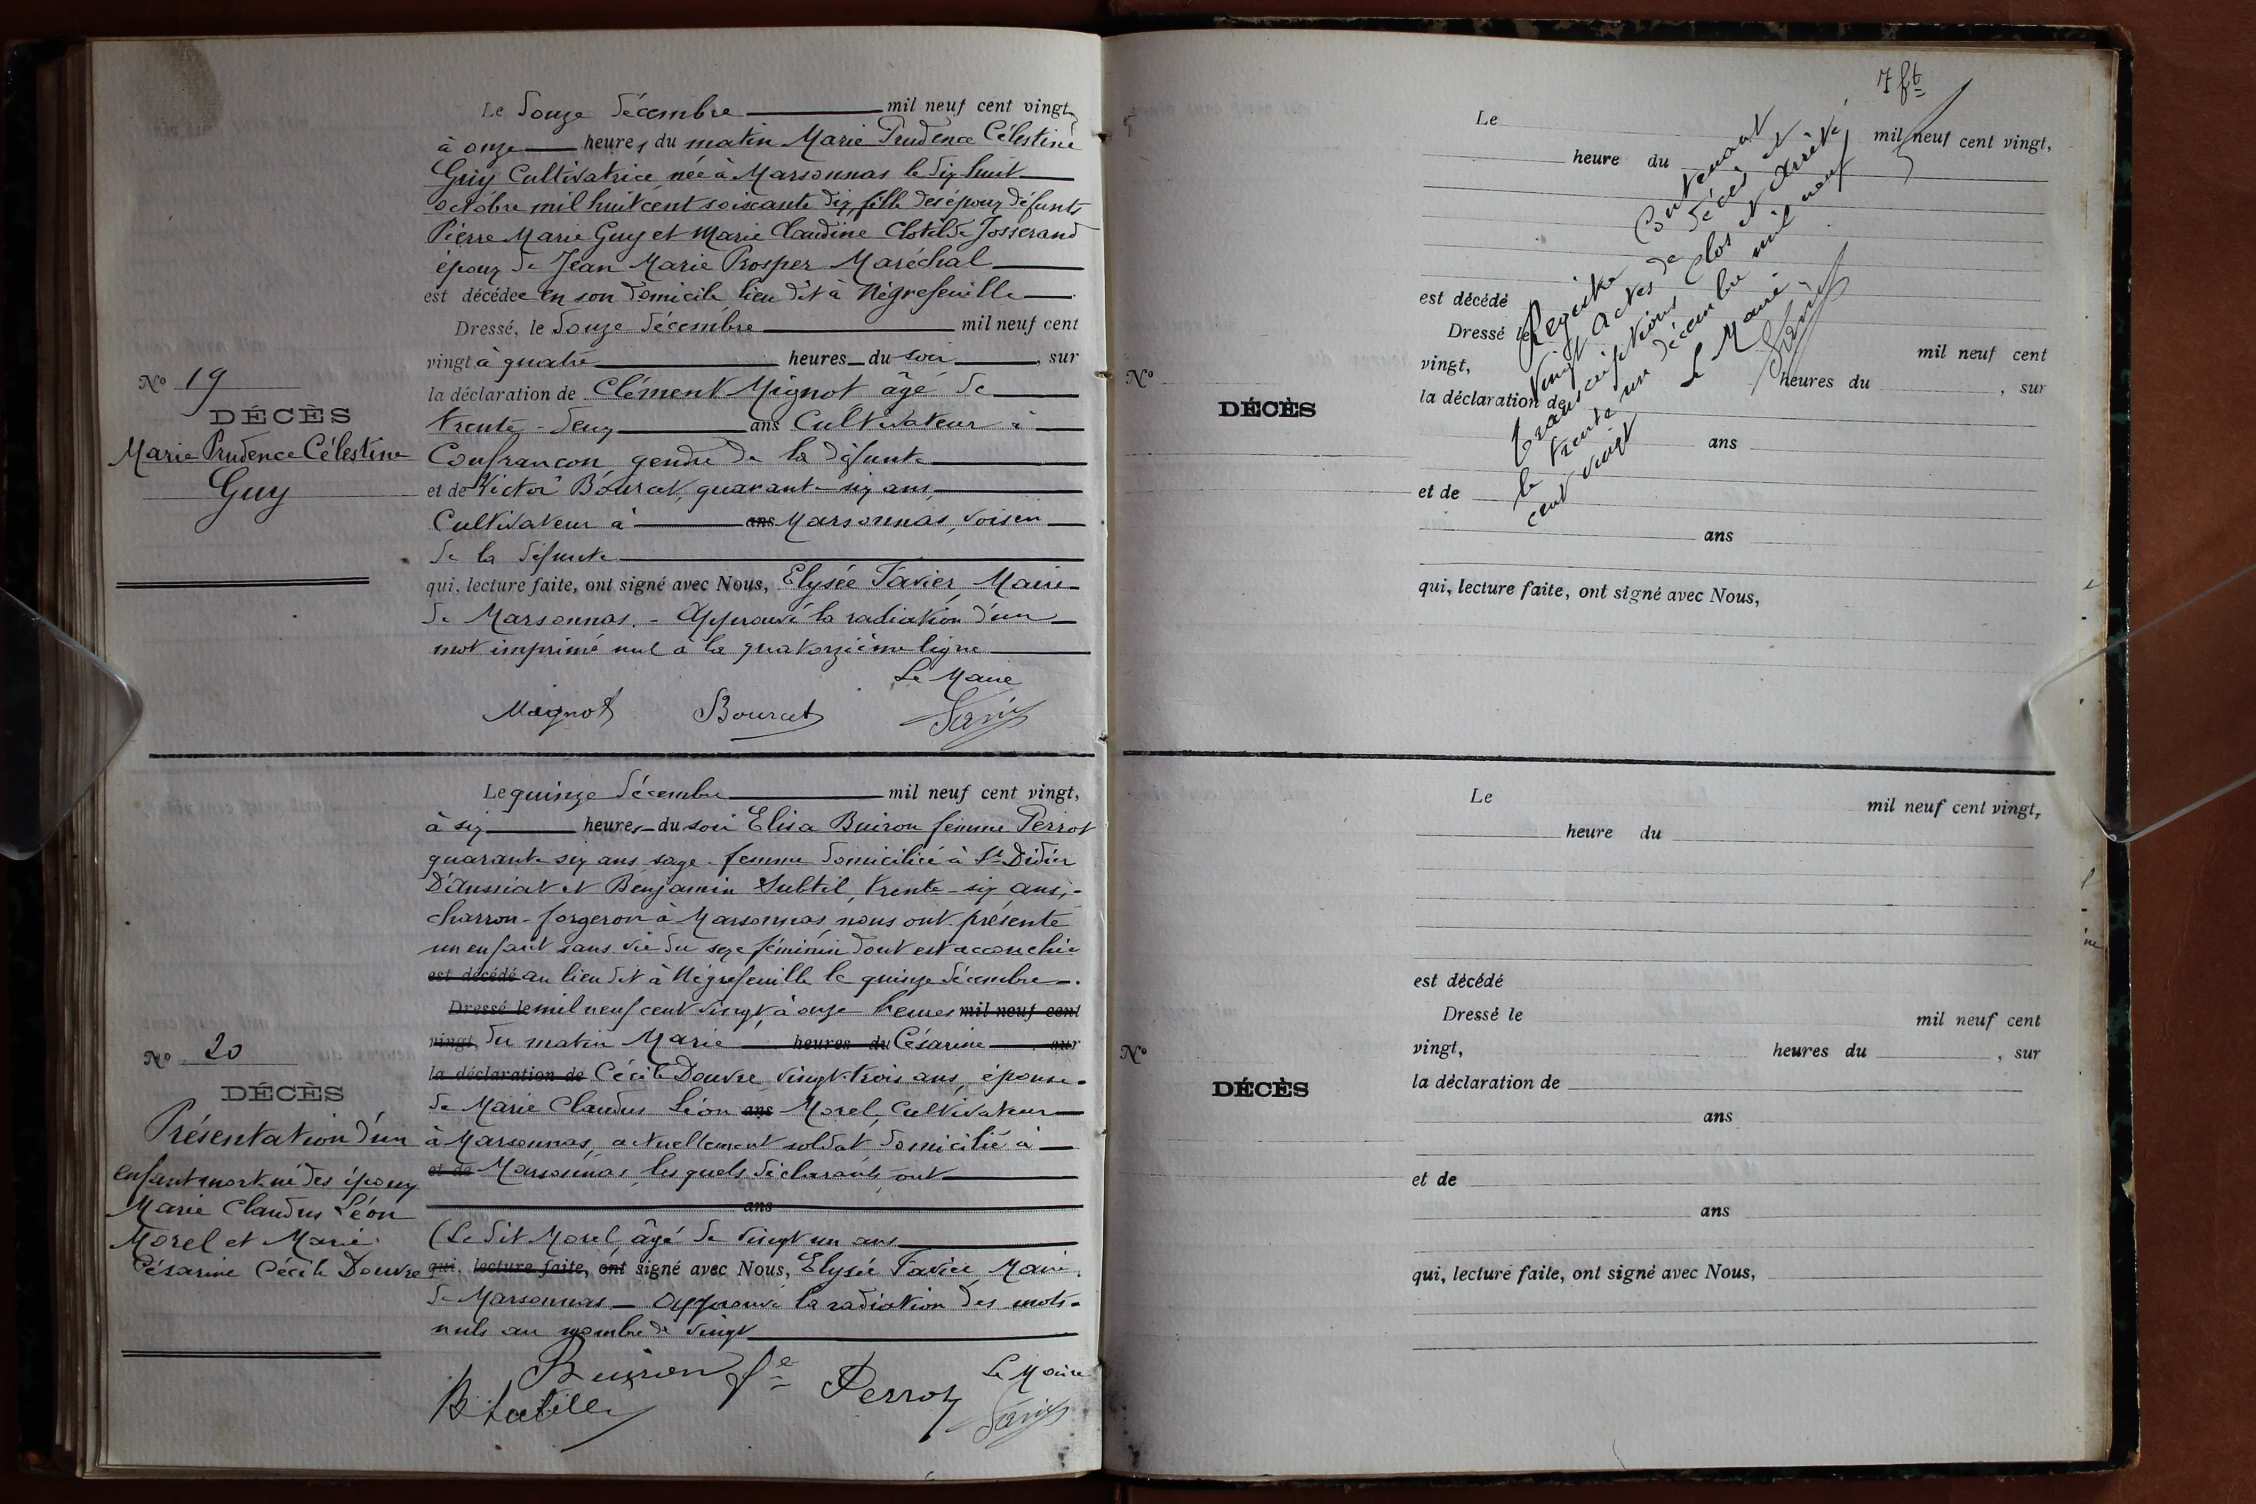 Le douze décembre mil neuf cent vingt,
à onze heures du matin Marie Prudence Célestine
Guy Cultivatrice née à Marsonnas le dix huit
octobre mil huit cent soixante dix, fille des époux défunts
Pierre Marie Guy et Marie Claudine Clotilde Josserand
épouz de Jean Marie Prosper Maréchal
est décédée en son domicile lieu dit à Négrefeuille
Dressé, le douze décembre mil neuf cent
vingt à quatre heures du soir, sur
la déclaration de Clément Mignot âgé de
trente-deux ans Cultivateur à
Confrançon, gendre de la défunte
et de Victor Bourcet, quarante-six ans,
Cultivateur à ans Marsonnas, voisin
de la défunte
qui, lecture faite, ont signé avec Nous, Elysée Favier, Maire
de Marsonnas. - Approuvé la radiation d'un
mot imprimé nul à la quatorzième ligne
Le Maire
Mignot Bourcet Favier
N° 19
DÉCÈS
Marie Prudence Célestine
Guy
Le quinze décembre mil neuf cent vingt,
à six heures du soir Elisa Buiron femme Perrot
quarante six ans sage-femme domiciliée à St Didier
D'Aussiat et Benjamin Subtil, trente-six ans,
charron-forgeron à Marsonnas, nous ont présenté
un enfant sans vie du sexe féminin dont est accouchée
est décédé au lieu dit à Négrefeuille le quinze décembre
Dressé le mil neuf cent vingt, à onze heures mil neuf cent
vingt, du matin Marie heures du Césarine, sur
la déclaration de Cécile Douvre, vingt-trois ans, épouse
de Marie Claudius Léon ans Morel, Cultivateur
à Marsonnas, actuellement soldat domicilié à
et de Marsonnas, lesquels déclarants ont
ans
(Le dit Morel, âgé de vingt un ans
qui, lecture faite, ont signé avec Nous, Elysée Favier Maire
de Marsonnas - Approuvé la radiation des mots
nuls au nombre de vingt
Buiron fe Perrot Le Maire
B Subtil Favier
N° 20
DÉCÈS
Présentation d'un
enfant mort né des époux
Marie Claudius Léon
Morel et Marie
Césarine Cécile Douvre
7 ft
Le mil neuf cent vingt,
heure du
est décédé
Dressé le mil neuf cent
vingt, heures du , sur
la déclaration de
ans
et de
ans
qui, lecture faite, ont signé avec Nous,
N°
DÉCÈS
Registre Contenant
vingt actes de décès et
transcriptions Clos et Arrêté
le trente un décembre mil neuf
cent vingt Le Maire
Favier
Le mil neuf cent vingt,
heure du
est décédé
Dressé le mil neuf cent
vingt, heures du , sur
la déclaration de
ans
et de
ans
qui, lecture faite, ont signé avec Nous,
N°
DÉCÈS